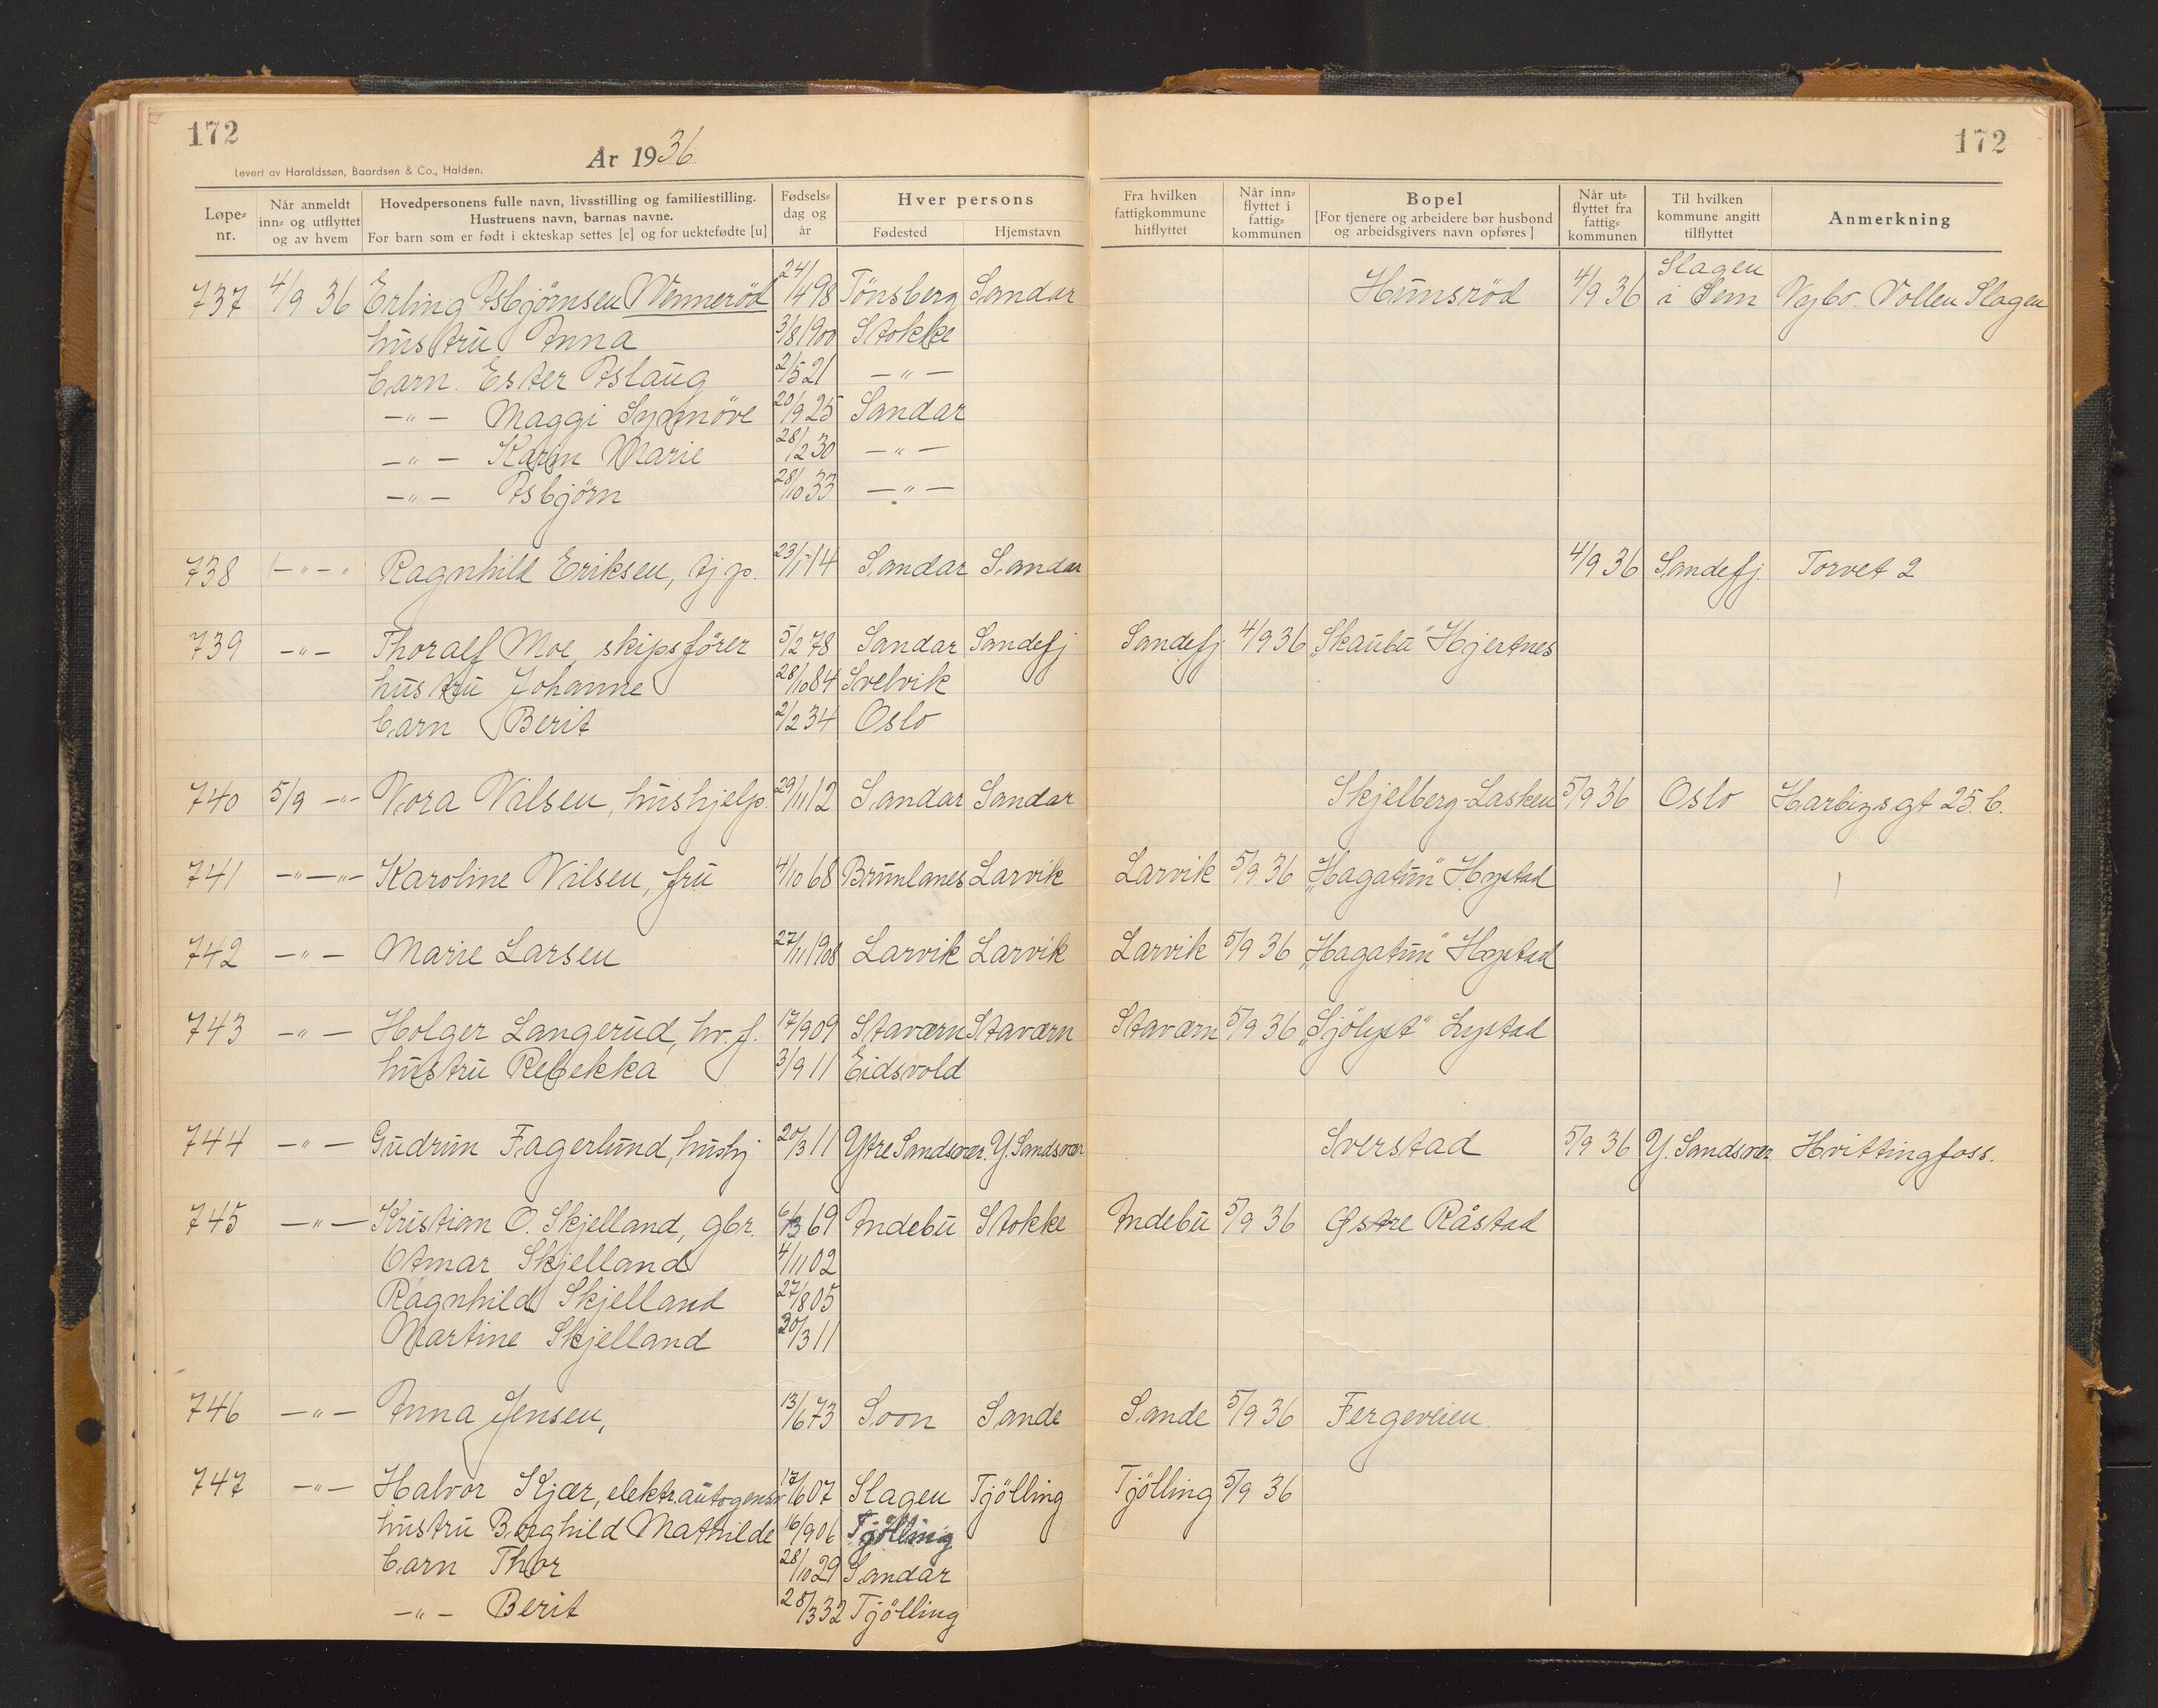 172
172
Levert av Haraldssøn, Baardsen & Co., Halden.
År 1936
Løpe-nr.
Når anmeldt inn- og utflyttet og av hvem
Hovedpersonens fulle navn, livsstilling og familiestilling. Hustruens navn, barnas navne. For barn som er født i ekteskap settes [e] og for uektefødte [u]
Fødsels-dag og år
Hver persons
Fødested
Hjemstavn
Fra hvilken fattigkommune hitflyttet
Når inn-flyttet i fattig-kommunen
Bopel [For tjenere og arbeidere bør husbond og arbeidsgivers navn opføres]
Når ut-flyttet fra fattig-kommunen
Til hvilken kommune angitt tilflyttet
Anmerkning
737 4/9 36 Erling Asbjørnsen Vennerød 24/4 98 Tønsberg Sandar Hunsrød 4/9 36 Slagen i Sem Nybo. Vollen Slagen
hustru Anna 3/8 1900 Stokke
barn. Ester Aslaug 2/5 21 —"—
—"— Maggi Synnøve 20/9 25 Sandar
—"— Karin Marie 28/2 30 —"—
—"— Asbjørn 28/10 33 —"—
738 —"—" Ragnhild Eriksen, tj.p. 23/1 14 Sandar Sandar 4/9 36 Sandefj. Torvet 2
739 —"— Thoralf Moe, skipsfører 5/2 78 Sandar Sandefj Sandefj 4/9 36 „Skaubu" Hjertnes
hustru Johanne 28/10 84 Svelvik
barn Berit 2/2 34 Oslo
740 5/9 —"— Nora Nilsen, hushjelp. 29/11 12 Sandar Sandar Skjelberg-Lasken 5/9 36 Oslo Harbizsgt 25. b.
741 —"—"— Karoline Nilsen, fru 4/10 68 Brunlanes Larvik Larvik 5/9 36 „Hagatun" Hystad
742 —"— Marie Larsen 27/11 1908 Larvik Larvik Larvik 5/9 36 „Hagatun" Hystad
743 —"— Holger Langerud, hv. f. 17/9 09 Staværn Staværn Staværn 5/9 36 „Sjölyst" Lystad
hustru Rebekka 3/9 11 Eidsvold
744 —"— Gudrun Fagerlund, hushj 20/3 11 Ytre Sandsvær. Y. Sandsvær Sverstad 5/9 36 Y. Sandsvær Hvittingfoss.
745 —"— Kristian O. Skjelland, gbr. 6/3 69 Andebu Stokke Andebu 5/9 36 Østre Råstad
Otmar Skjelland 4/11 02
Ragnhild Skjelland 27/8 05
Martine Skjelland 30/3 11
746 —"— Anna Jensen, 13/6 73 Soon Sande Sande 5/9 36 Fergeveien.
747 —"— Halvor Kjær, elektr. autogensv 17/6 07 Slagen Tjölling Tjölling 5/9 36
hustru Borghild Mathilde 16/9 06 Tjölling
barn Thor 28/10 29 Sandar
—"— Berit 28/3 32 Tjölling